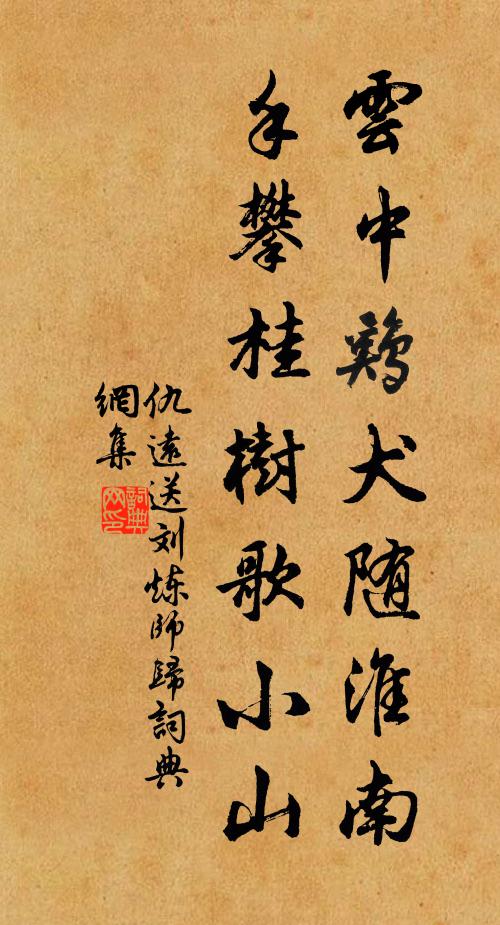 雲中鷄犬随淮南
手攀桂樹歌小山
仇遠送刘炼師歸詞典
網集
詞典
网印